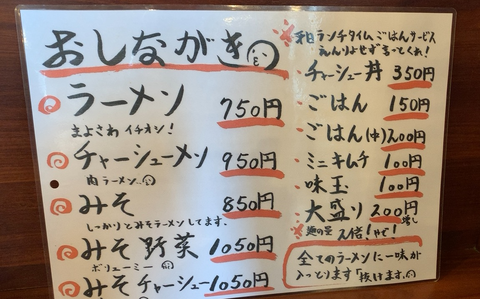 おしながき
ラーメン 750円
きよさわ イチオシ!
チャーシューメン 950円
肉ラーメン
みそ 850円
しっかりとみそラーメンしてます。
みそ野菜 1050円
ボリューミー
みそチャーシュー 1050円
※平日ランチタイムごはんサービス
えんりょせず言ってくれ!
・チャーシュー丼 350円
・ごはん 150円
・ごはん(中) 200円
・ミニキムチ 100円
・味玉 100円
・大盛り 200円増し
※麺の量 2倍!やで!
全てのラーメンに一味が
入っとります「抜けます。